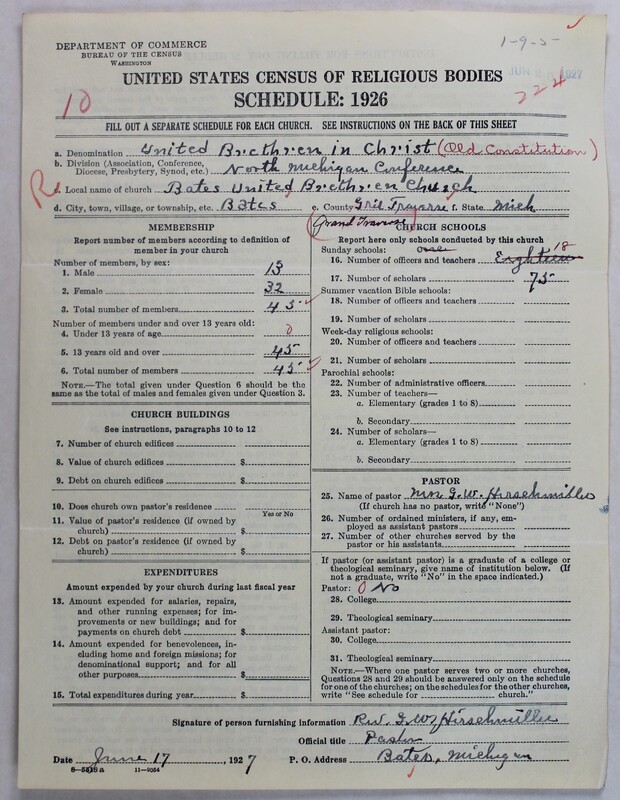 1-9-5-
DEPARTMENT OF COMMERCE
BUREAU OF THE CENSUS
WASHINGTON
JUN 1927
UNITED STATES CENSUS OF RELIGIOUS BODIES
10
224
SCHEDULE: 1926
FILL OUT A SEPARATE SCHEDULE FOR EACH CHURCH. SEE INSTRUCTIONS ON THE BACK OF THIS SHEET
a. Denomination United Brethren in Christ (Old Constitution)
b. Division (Association, Conference,
Diocese, Presbytery, Synod, etc.) North Michigan Conference
c. Local name of church Bates United Brethren Church
d. City, town, village, or township, etc. Bates e. County Grd. Traverse f. State Mich
Grand Traverse
MEMBERSHIP
Report number of members according to definition of
member in your church
Number of members, by sex:
1. Male 13
2. Female 32
3. Total number of members 45
Number of members under and over 13 years old:
4. Under 13 years of age 0
5. 13 years old and over 45
6. Total number of members 45
NOTE.—The total given under Question 6 should be the
same as the total of males and females given under Question 3.
CHURCH BUILDINGS
See instructions, paragraphs 10 to 12
7. Number of church edifices
8. Value of church edifices $
9. Debt on church edifices $
10. Does church own pastor's residence
Yes or No
11. Value of pastor's residence (if owned by
church) $
12. Debt on pastor's residence (if owned by
church) $
EXPENDITURES
Amount expended by your church during last fiscal year
13. Amount expended for salaries, repairs,
and other running expenses; for im-
provements or new buildings; and for
payments on church debt $
14. Amount expended for benevolences, in-
cluding home and foreign missions; for
denominational support; and for all
other purposes $
15. Total expenditures during year $
CHURCH SCHOOLS
Report here only schools conducted by this church
Sunday schools: one
16. Number of officers and teachers Eighteen 18
17. Number of scholars 75
Summer vacation Bible schools:
18. Number of officers and teachers
19. Number of scholars
Week-day religious schools:
20. Number of officers and teachers
21. Number of scholars
Parochial schools:
22. Number of administrative officers
23. Number of teachers—
a. Elementary (grades 1 to 8)
b. Secondary
24. Number of scholars—
a. Elementary (grades 1 to 8)
b. Secondary
PASTOR
25. Name of pastor G. W. Hirschmiller
(If church has no pastor, write "None")
26. Number of ordained ministers, if any, em-
ployed as assistant pastors
27. Number of other churches served by the
pastor or his assistants
If pastor (or assistant pastor) is a graduate of a college or
theological seminary, give name of institution below. (If
not a graduate, write "No" in the space indicated.)
Pastor: 0 No
28. College
29. Theological seminary
Assistant pastor:
30. College
31. Theological seminary
NOTE.—Where one pastor serves two or more churches,
Questions 28 and 29 should be answered only on the schedule
for one of the churches; on the schedules for the other churches,
write "See schedule for church."
Signature of person furnishing information Rev. G. W. Hirschmiller
Official title Pastor
Date June 17, 1927 P. O. Address Bates, Michigan
8-5518a 11-9064